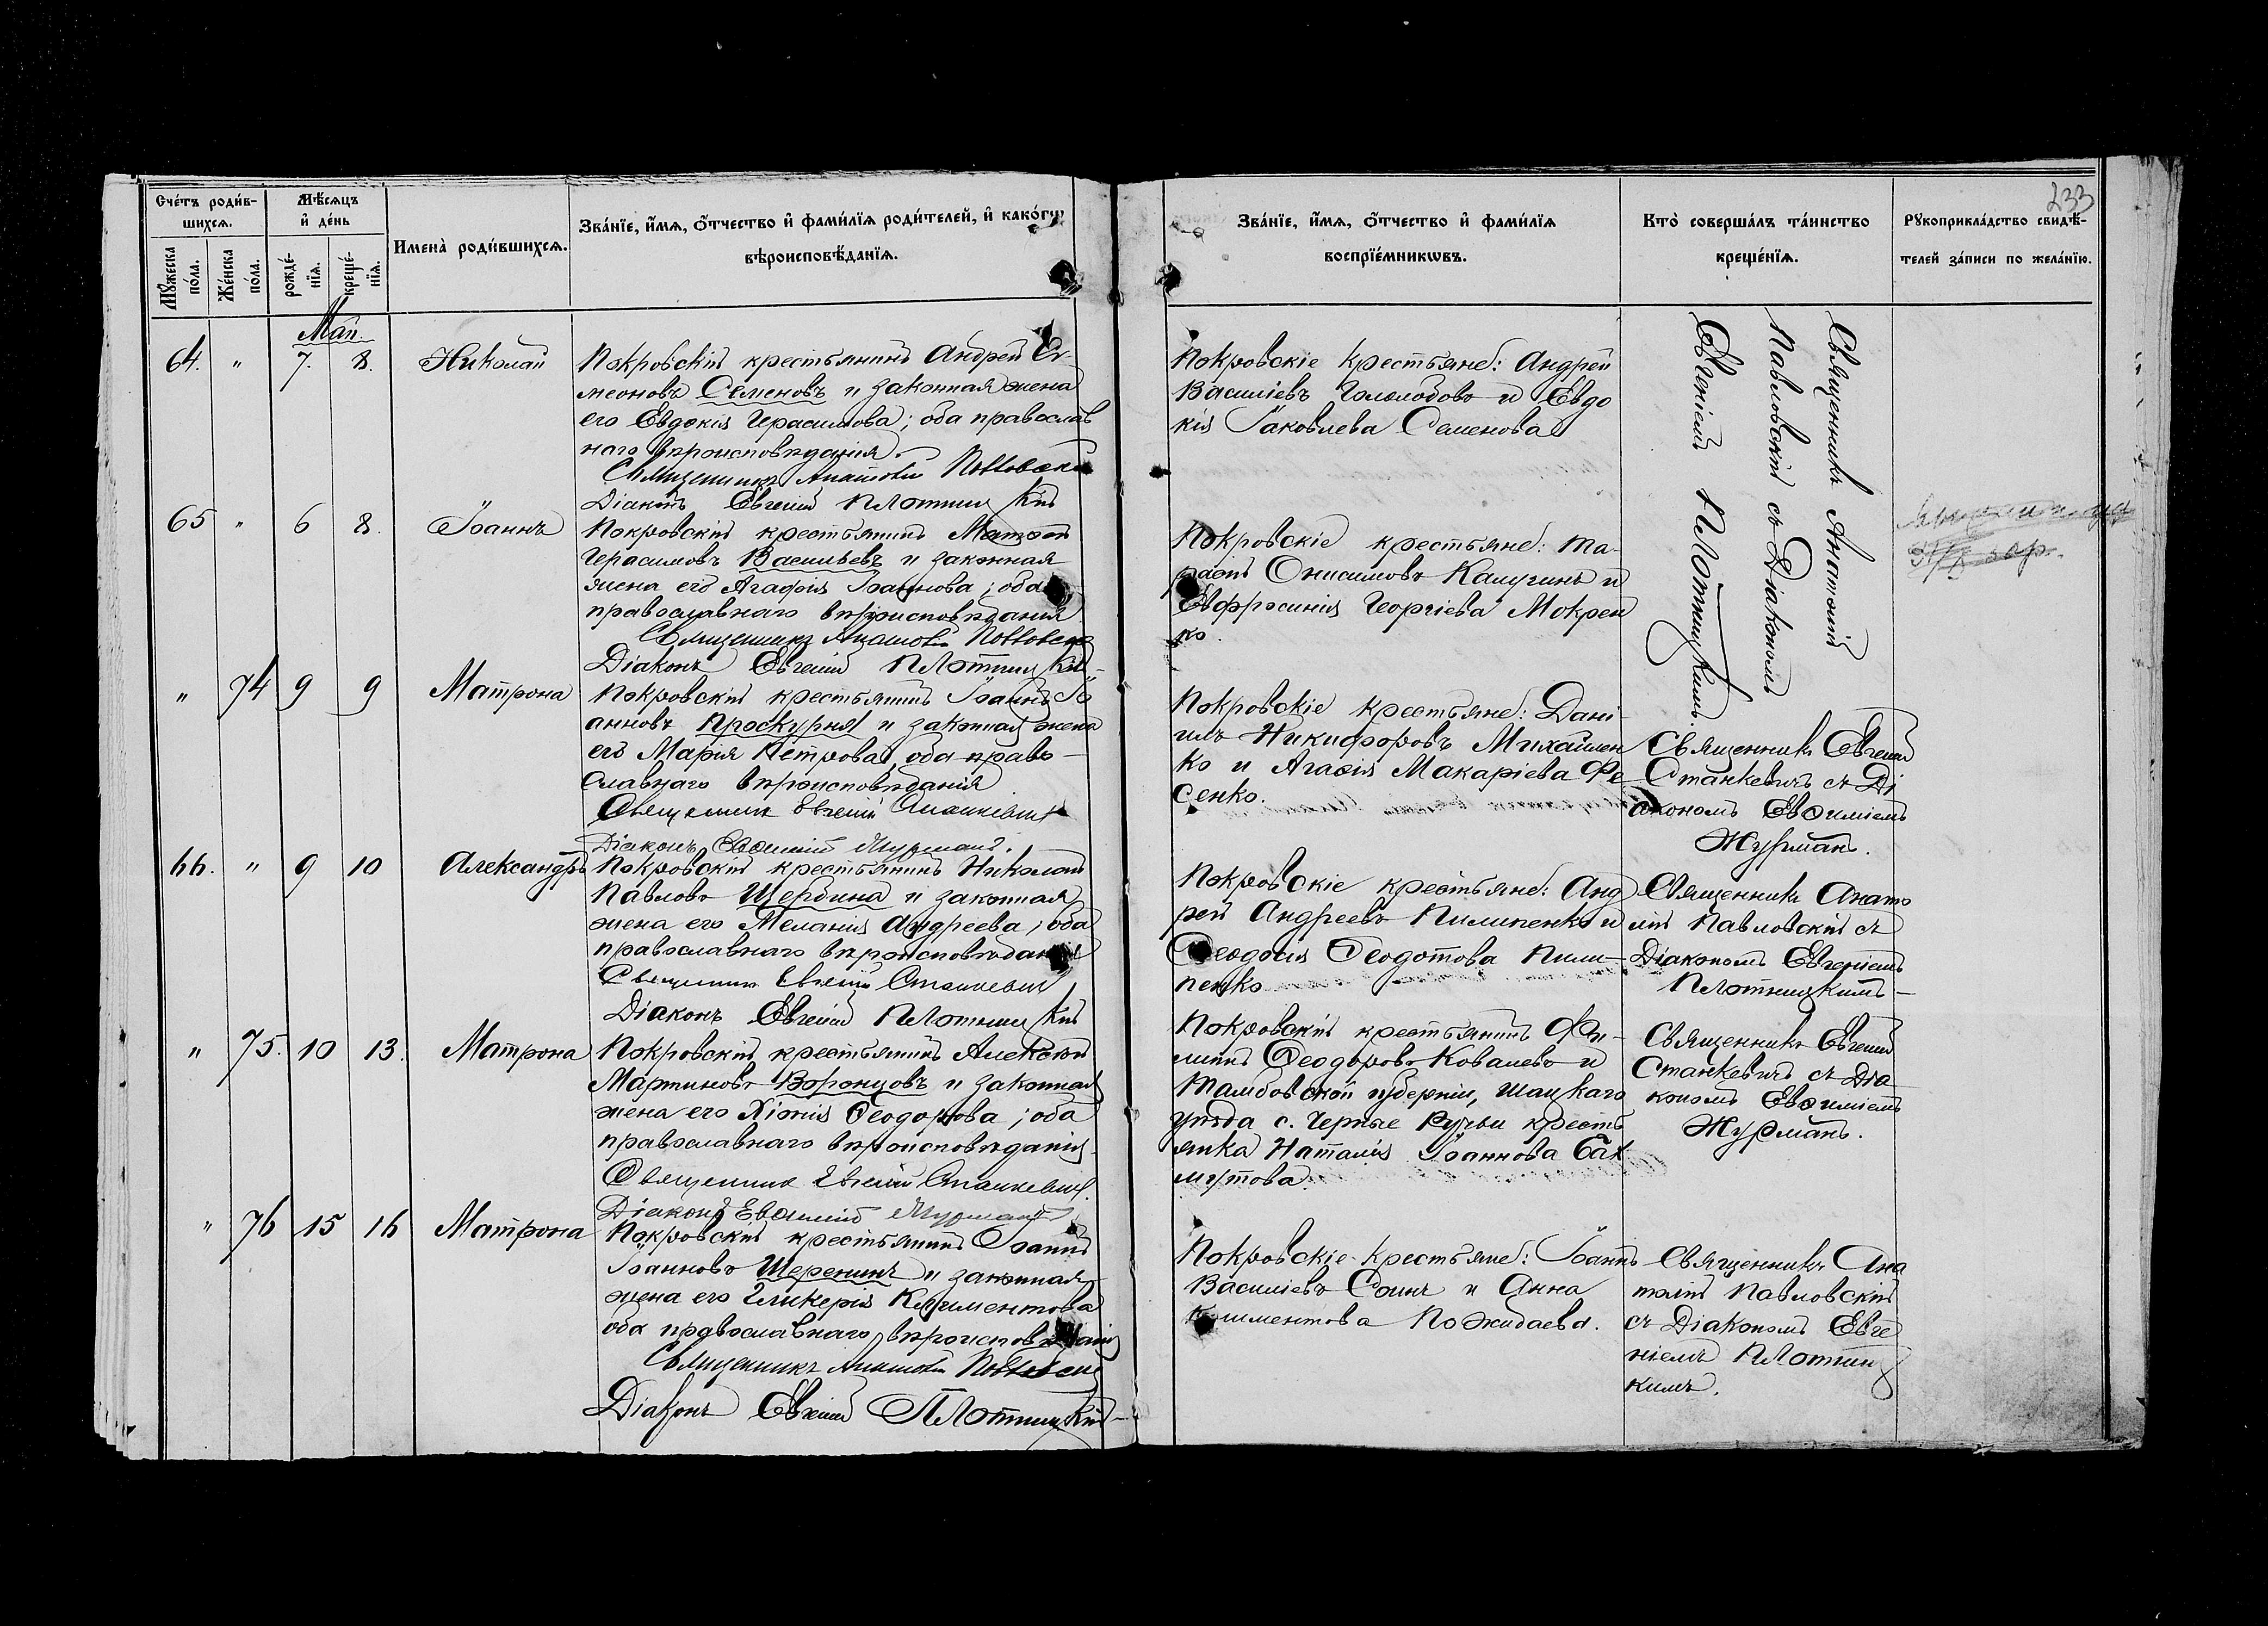 233
Счетъ родив-
шихся.
Мѣсяцъ
и день
Мужеска
пола.
Женска
пола.
рожде-
нія.
креще-
нія.
Имена родившихся.
Званіе, имя, отчество и фамилія родителей, и какогѡ
вѣроисповѣданія.
Званіе, имя, отчество и фамилія
воспріемниковъ.
Кто совершалъ таинство
крещенія.
Рукоприкладство свидѣ-
телей записи по желанію.
Май.
64. " 7. 8. Николай
Покровскій крестьянинъ Андрей Си-
меоновъ Семеновъ и законная жена
его Евдокія Герасимова; оба православ
наго вѣроисповѣданія.
Священникъ Анатолій Павловскій
Діаконъ Евгеній Плотницкій
Покровскіе крестьяне: Андрей
Василіевъ Гололобовъ и Евдо
кія Іаковлева Семенова
Священникъ Анатолій
Павловскій съ Діакономъ
Евгеніемъ Плотницкимъ.
65 " 6 8. Іоаннъ
Покровскій крестьянинъ
Герасимовъ Васильевъ и законная
жена его Агафія Іоаннова; оба
православнаго вѣроисповѣданія
Священникъ Анатолій Павловскій
Діаконъ Евгеній Плотницкій
Покровскіе крестьяне: Та-
расій Онисимовъ Калугинъ и
Евфросинія Георгіева Мокрен
ко.
" 74 9 9 Матрона
Покровскій крестьянинъ Іоаннъ Іо
анновъ Проскурня и законная жена
его Марія Петрова, оба право-
славнаго вѣроисповѣданія
Священникъ Евгеній Станкевичъ
Діаконъ Евѳимій Журманъ.
Покровскіе крестьяне: Дані-
илъ Никифоровъ Михайлен
ко и Агаѳія Макаріева Фе
сенко.
Священникъ Евгеній
Станкевичъ съ Ді
акономъ Евѳиміемъ
Журманъ.
66. " 9 10 Александръ
Покровскій крестьянинъ Николай
Павловъ Щербина и законная
жена его Меланія Андреева; оба
православнаго вѣроисповѣданія
Священникъ Евгеній Станкевичъ
Діаконъ Евгеній Плотницкій
Покровскіе крестьяне: Анд
рей Андреевъ Пилипенко и
Ѳеодосія Ѳеодотова Пили-
пенко
Священникъ Анато
лій Павловскій съ
Діакономъ Евгеніемъ
Плотницкимъ-
" 75. 10 13. Матрона
Покровскій крестьянинъ Алексѣй
Мартиновъ Воронцовъ и законная
жена его Хіонія Ѳеодорова; оба
православнаго вѣроисповѣданія
Священникъ Евгеній Станкевичъ.
Діаконъ Евѳимій Журманъ
Покровскій крестьянинъ Фи-
липпъ Ѳеодоровъ Ковалевъ и
Тамбовской губерніи, Шацкаго
уѣзда с. Черные Ручьи кресть
янка Наталія Іоаннова Бах
мутова.
Священникъ Евгеній
Станкевичъ съ Діа
кономъ Евѳиміемъ
Журманъ.
" 76 15 16 Матрона
Покровскій крестьянинъ Іоаннъ
Іоанновъ Шеренинъ и законная
жена его Гликерія Климентова
оба православнаго вѣроисповѣданія
Священникъ Анатолій Павловскій
Діаконъ Евгеній Плотницкій-
Покровскіе крестьяне: Іоаннъ
Василіевъ Соинъ и Анна
Климентова Пожидаева.
Священникъ Ана
толій Павловскій
съ Діакономъ Евге
ніемъ Плотниц
кимъ.